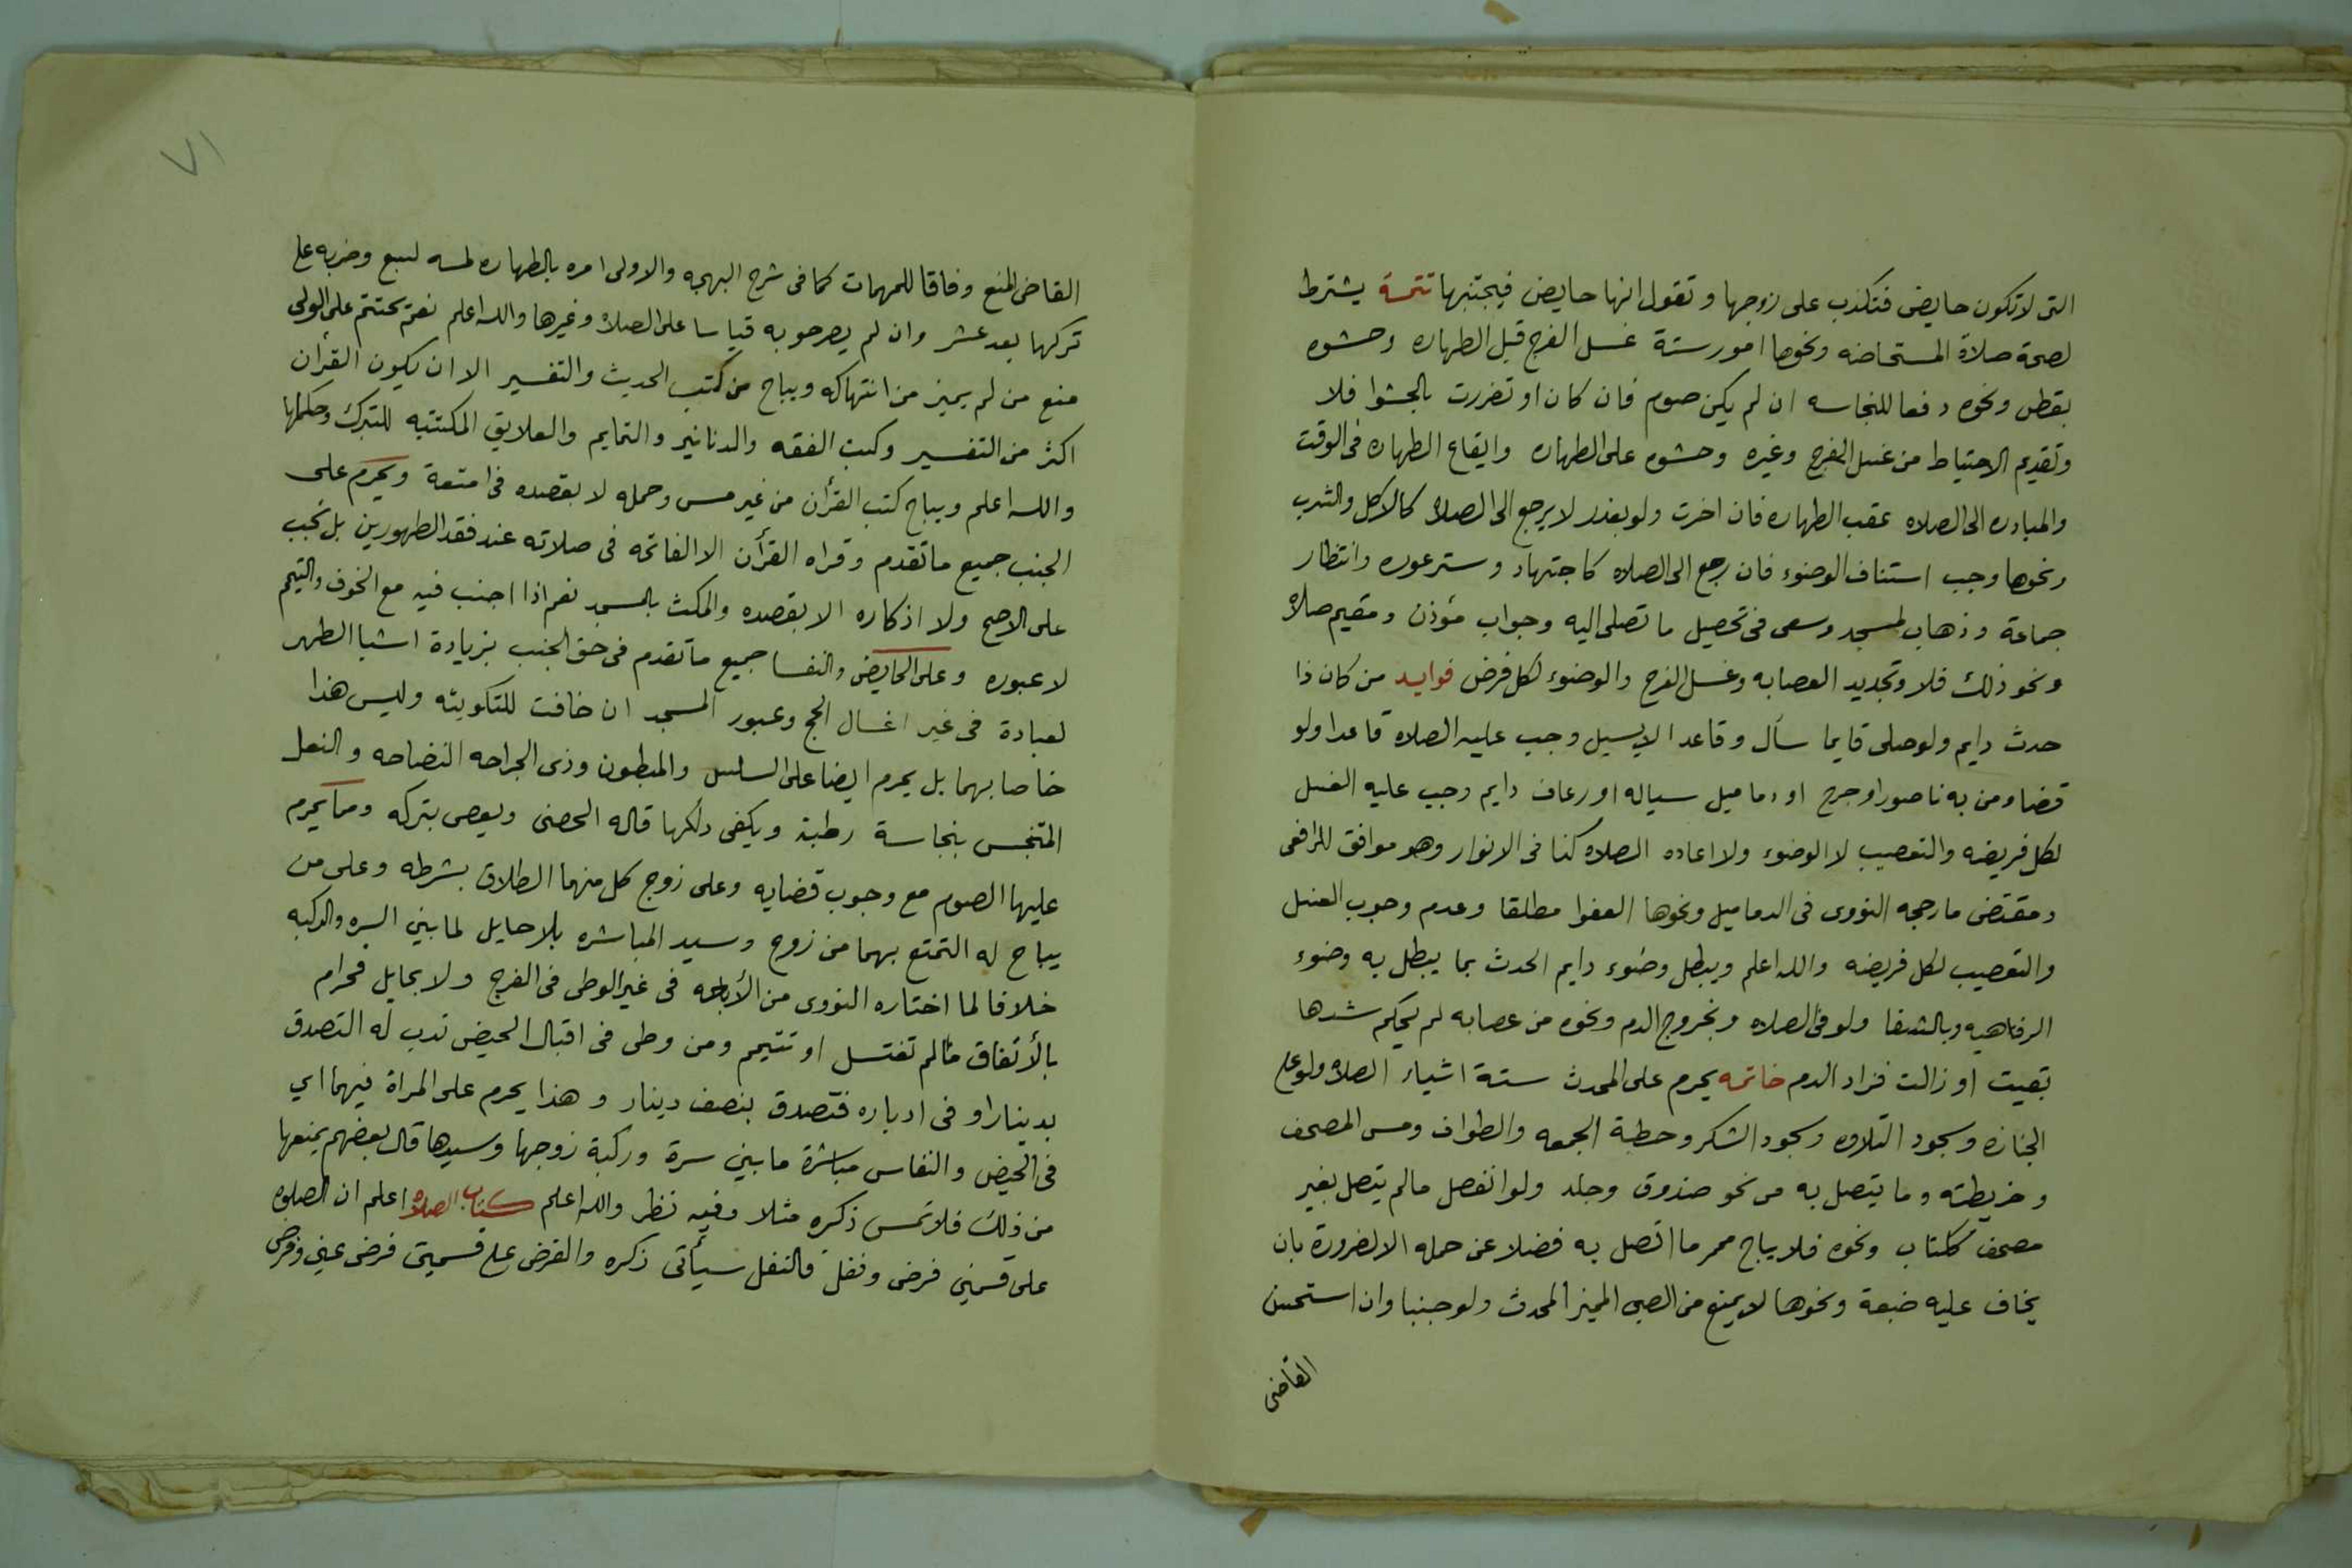 التى لا تكون حايض فتكذب على زوجها وتقول انها حايض فيجتنبها تتمة يشترط
لصحة صلاة المستحاضه ونحوها امور ستة غسل الفرج قبل الطهاره وحشوه
بقطن ونحوه دفعا للنجاسه ان لم يكن صوم فان كان او تضررت بالحشوا فلا
وتقديم الاحتياط من غسل الفرج وغيره وحشوه على الطهاره وايقاع الطهاره فى الوقت
والمبادره الى الصلاه عقب الطهاره فان اخرت ولو بعذر لا يرجع الى الصلاه كالاكل والشرب
ونحوها وجب استناف الوضوء فان رجع الى الصلاه كاجتهاد وستر عوره وانتظار
جماعة وذهاب لمسجد وسعى فى تحصيل ما تصلى اليه وجواب مؤذن ومقيم صلاه
ونحو ذلك فلا وتجديد العصابه وغسل الفرج والوضوء لكل فرض فوايد من كان ذا
حدث دايم ولو صلى قايما سأل وقاعدا لا يسيل وجب عليه الصلاه قاعدا ولو
قضا ومن به ناصور او جرح او دماميل سياله او رعاف دايم وجب عليه الغسل
لكل فريضه والتعصيب لا الوضوء ولا اعاده الصلاه كذا فى الانوار وهو موافق للرافعى
ومقتضى ما رجحه النووى فى الدماميل ونحوها العفوا مطلقا وعدم وجوب الغسل
والتعصيب لكل فريضه والله اعلم ويبطل وضوء دايم الحدث بما يبطل به وضوء
الرفاهيه وبالشفا ولو فى الصلاه وبخروج الدم ونحوه من عصابه لم يحكم شدها
بقيت او زالت فزاد الدم خاتمه يحرم على المحدث ستة اشياء الصلاه ولو على
الجنازه وسجود التلاوه وسجود الشكر وخطبة الجمعه والطواف ومس المصحف
وخريطته وما يتصل به من نحو صندوق وجلد ولو انفصل مالم يتصل بغير
مصحف ككتاب ونحوه فلا يباح محرما اتصل به فضلا عن حمله الا لضرورة بان
يخاف عليه ضيعة ونحوها لا يمنع من الصبى المميز المحدث ولو جنبا وان استحسن
القاضى
٧١
القاضى المنع وفاقا للمهمات كما فى شرح البهجه والاولى امره بالطهاره لمسه لسبع وضربه على
تركها بعد عشر وان لم يصرحو به قياسا على الصلاه وغيرها والله اعلم نعم يحتتم على الولى
منع من لم يميز من انتهاكه ويباح من كتب الحديث والتفسير الا ان يكون القرأن
اكثر من التفسير وكتب الفقه والدنانير والتمايم والعلايق المكتتبه للتبرك وحكمها
والله اعلم ويباح كتب القرأن من غير مس وحمله لا بقصده فى امتعة ويحرم على
الجنب جميع ما تقدم وقراه القرأن الا الفاتحه فى صلاته عند فقد الطهورين بل تجب
على الاصح ولا اذكاره الا بقصده والمكث بالمسجد نعم اذا اجنب فيه مع الخوف والتيمم
لا عبوره وعلى الحايض والنفسا جميع ما تقدم فى حق الجنب بزيادة اشيا الطهر
لعبادة فى غير اغسال الحج وعبور المسجد ان خافت للتكويثه وليس هذا
خاصا بهما بل يحرم ايضا على السلس والمبطون وذى الجراحه النضاحه والنعل
المتنجس بنجاسة رطبة ويكفى دلكها قاله الحصنى ويعصى بتركه ومما يحرم
عليها الصوم مع وجوب قضايه وعلى زوج كل منهما الطلاق بشرطه وعلى من
يباح له التمتع بهما من زوج وسيد المباشره بلا حايل لما بين السره والركبه
خلافا لما اختاره النووى من الأباحه فى غير الوطى فى الفرج ولا بحايل فحرام
بالأتفاق مالم تغتسل او تتيمم ومن وطى فى اقبال الحيض ندب له التصدق
بدينار او فى ادباره فتصدق بنصف دينار وهذا يحرم على المراة فيهما اي
فى الحيض والنفاس مباشرة ما بين سرة وركبة زوجها وسيدها قال بعضهم يمنعها
من ذلك فلا تمس ذكره مثلا وفيه نظر والله اعلم كتاب الصلاه اعلم ان الصلوه
على قسمين فرض ونفل فالنفل سيأتى ذكره والفرض على قسمين فرض عين وفرض